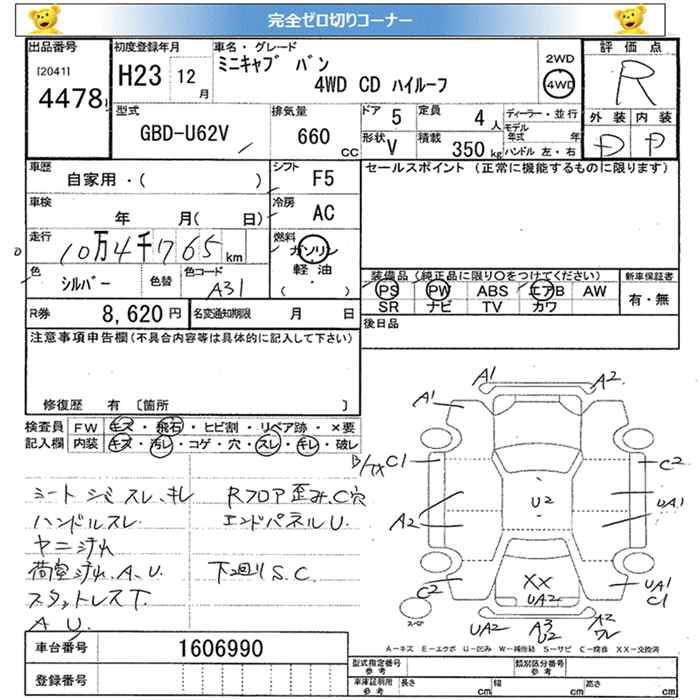 完全ゼロ切りコーナー
出品番号
[2041]
4478
初度登録年月
H23 12月
車名・グレード
ミニキャブ バン
4WD CD ハイルーフ
2WD
4WD
評価点
R
外装 内装
D D
型式
GBD-U62V
排気量
660
cc
ドア 5
定員 4人
形状 V
積載 350kg
ディーラー・並行
モデル年式 年
ハンドル 左・右
車歴
自家用・( )
シフト
F5
セールスポイント (正常に機能するものに限ります)
車検
年 月( 日)
冷房
AC
走行
10万4千765km
燃料
ガソリン
軽油
( ・ )
色
シルバー
色替
色コード
A31
装備品(純正品に限り○をつけてください)
PS PW ABS エアB AW
SR ナビ TV カワ
新車保証書
有・無
R券 8,620円
名変通知期限 月 日
後日品
注意事項申告欄(不具合内容等は具体的に記入して下さい)
修復歴 有 〔箇所 〕
検査員記入欄
FW キズ・飛石・ヒビ割・リペア跡・×要
内装 キズ・汚レ・コゲ・穴・スレ・キレ・破レ
シートシミ スレ、キレ
ハンドルスレ
ヤニ汚れ
荷室汚れ、A、U
スタットレスT.
A U.
Rフロア歪み、C穴
エンドパネルU.
下回りS.C.
A1 A2
A1
B/TX C1
C2
U2
UA1
A2
XX
UA2
C2
UA1
C1
スペア
UA2
A3
U2
A2
ワレ
A-キズ E-エクボ U-凹み W-補修跡 S-サビ C-腐食 XX-交換済
車台番号 1606990
登録番号
型式指定番号 参考
類別区分番号 参考
車庫証明用 参考
長さ cm
幅 cm
高さ cm